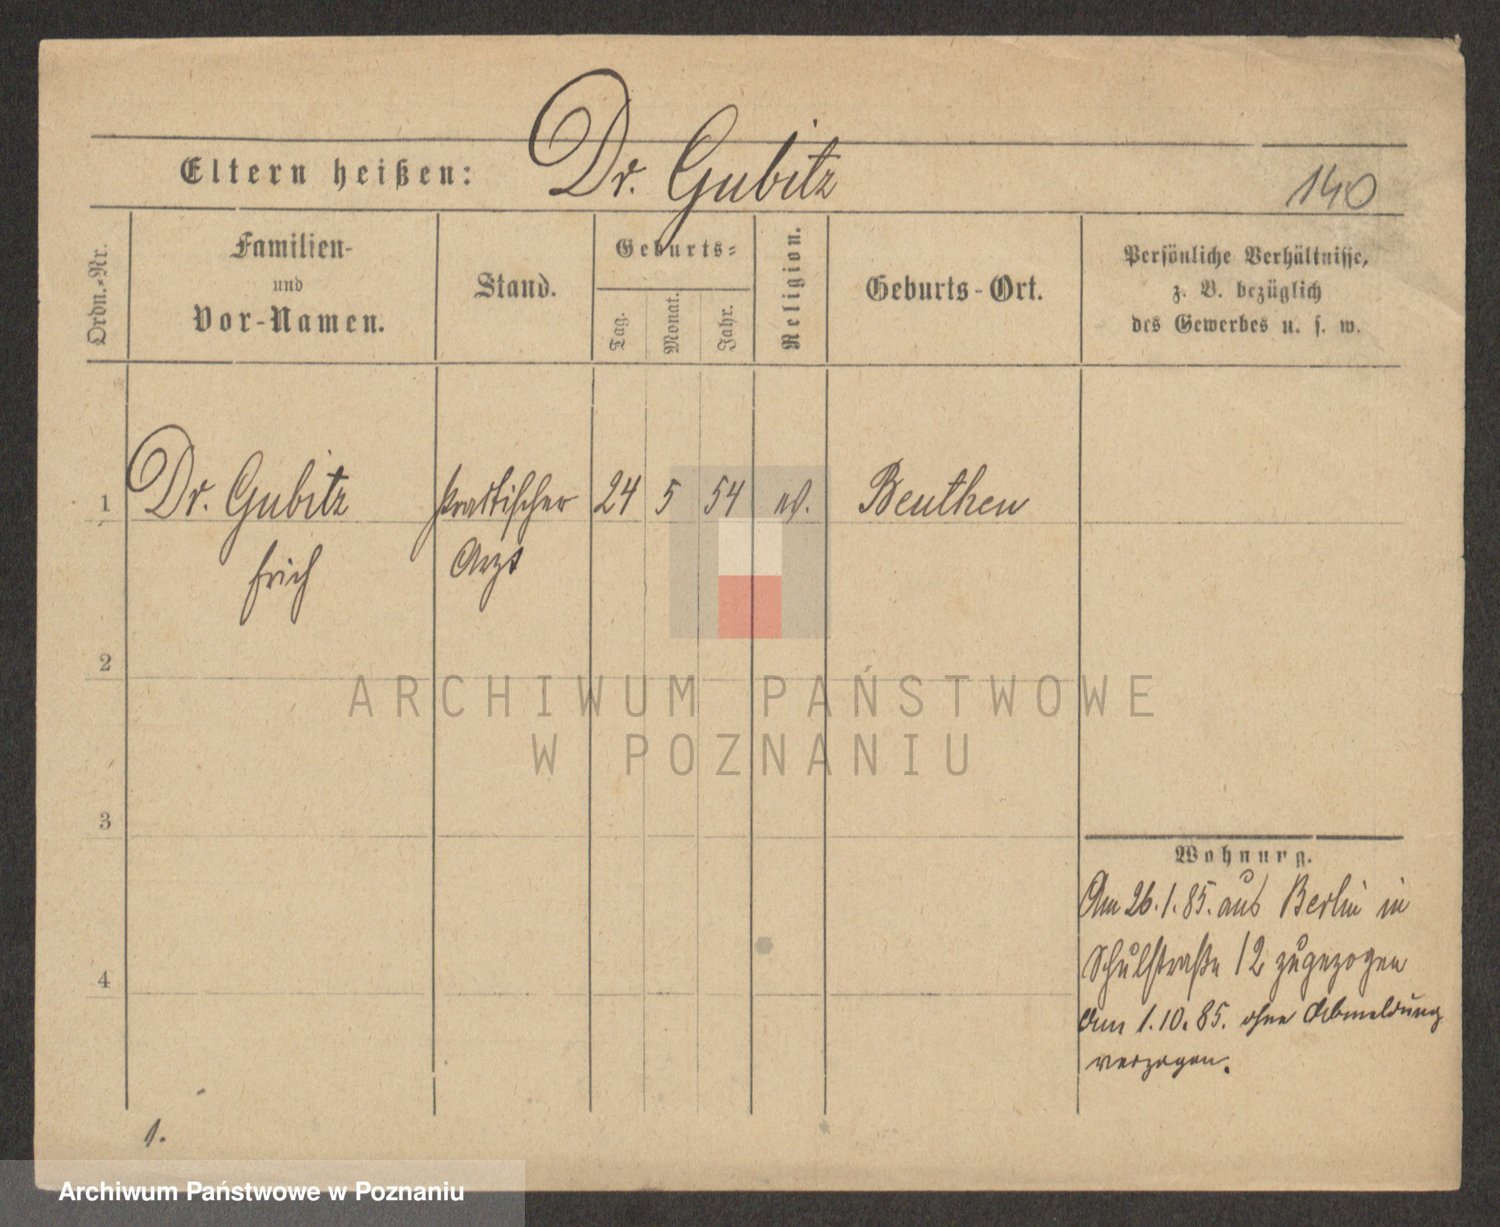 Eltern heißen: Dr. Gubitz
140
Ordn.-Nr.
Familien-
und
Vor-Namen.
Stand.
Geburts-
Tag.
Monat.
Jahr.
Religion.
Geburts-Ort.
Persönliche Verhältnisse,
z. B. bezüglich
des Gewerbes u. s. w.
1 Dr. Gubitz praktischer 24 5 54 ev. Beuthen
Erich Arzt
2
ARCHIWUM PAŃSTWOWE
W POZNANIU
3
Wohnung.
Am 26.1.85. aus Berlin in
Schulstraße 12 zugezogen
4
Am 1.10.85. ohne Abmeldung
verzogen.
1.
Archiwum Państwowe w Poznaniu